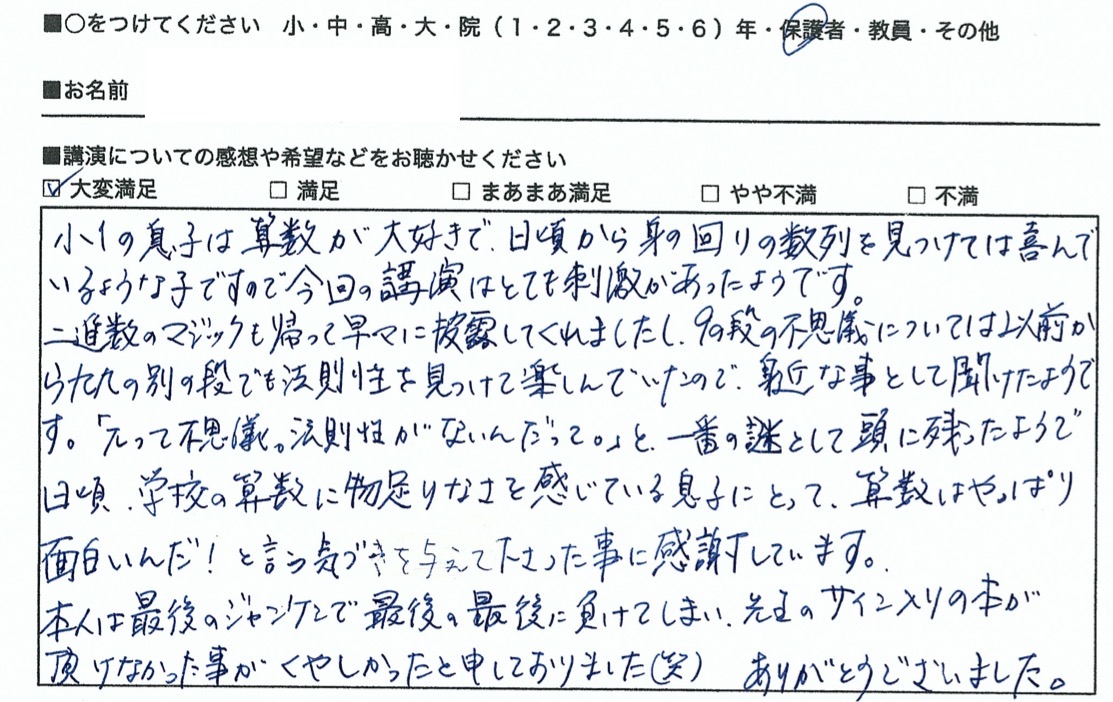 ■○をつけてください 小・中・高・大・院(1・2・3・4・5・6)年・保護者・教員・その他
■お名前
■講演についての感想や希望などをお聴かせください
☑ 大変満足 □ 満足 □ まあまあ満足 □ やや不満 □ 不満
小1の息子は算数が大好きで、日頃から身の回りの数列を見つけては喜んで
いるような子ですので今回の講演はとても刺激があったようです。
二進数のマジックも帰って早々に披露してくれましたし、9の段の不思議については以前か
ら九九の別の段でも法則性を見つけて楽しんでいたので、身近な事として聞けたようで
す。「πって不思議。法則性がないんだって。」と、一番の謎として頭に残ったようで
日頃、学校の算数に物足りなさを感じている息子にとって、算数はやっぱり
面白いんだ!と言う気づきを与えて下さった事に感謝しています。
本人は最後のジャンケンで最後の最後に負けてしまい、先生のサイン入りの本が
頂けなかった事がくやしかったと申しておりました(笑) ありがとうございました。